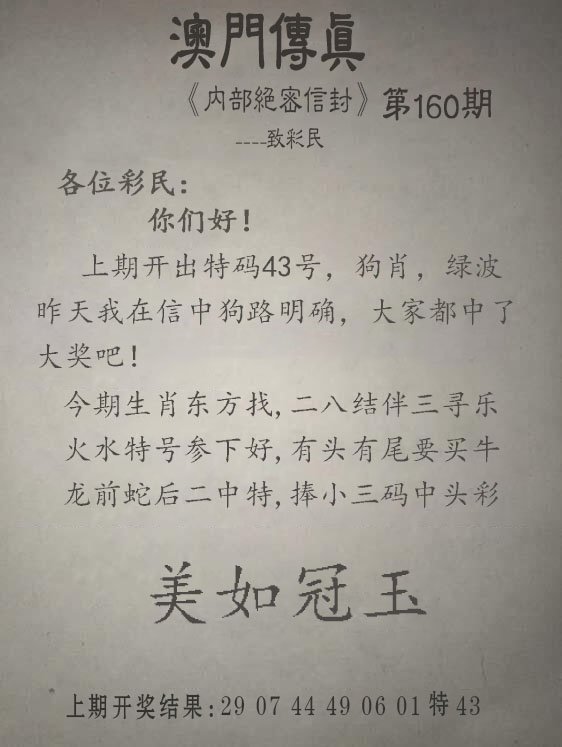 澳門傳真
《内部絕密信封》第160期
----致彩民
各位彩民：
你们好！
上期开出特码43号，狗肖，绿波
昨天我在信中狗路明确，大家都中了
大奖吧！
今期生肖东方找,二八结伴三寻乐
火水特号参下好,有头有尾要买牛
龙前蛇后二中特,捧小三码中头彩
美如冠玉
上期开奖结果:29 07 44 49 06 01特43